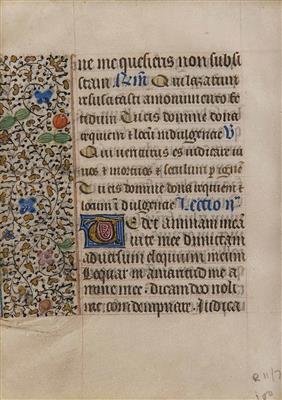 ne me quesieris non subsi
stam R̃m̃ Qui lazarum
resuscitasti a monumento fe
tidum Tu eis domine dona
requiem et locũ indulgencie V
Qui venturus es iudicare vi
uos et mortuos et seculum p ignẽ
Tu eis domine dona requiem et
locum ĩdulgencie Lectio ii
Tedet animam meã
vite mee dimittam
aduersum eloquium meum
Loquar in amaritudĩe a
nime mee. dicam deo noli
me condempnare. Iudica
R 11/7